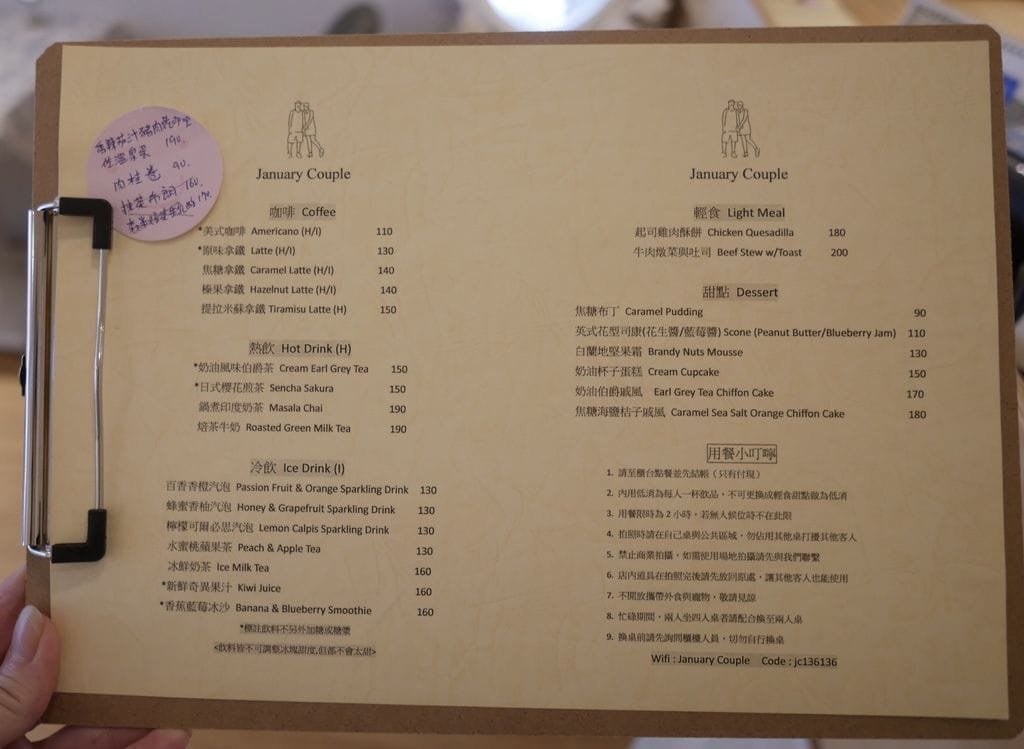 香辣茄汁豬肉
佐溫泉蛋 190.
肉桂卷 90.
抹茶布朗 160.
170.
January Couple
咖啡 Coffee
*美式咖啡 Americano (H/I) 110
*原味拿鐵 Latte (H/I) 130
焦糖拿鐵 Caramel Latte (H/I) 140
榛果拿鐵 Hazelnut Latte (H/I) 140
提拉米蘇拿鐵 Tiramisu Latte (H) 150
熱飲 Hot Drink (H)
*奶油風味伯爵茶 Cream Earl Grey Tea 150
*日式櫻花煎茶 Sencha Sakura 150
鍋煮印度奶茶 Masala Chai 190
焙茶牛奶 Roasted Green Milk Tea 190
冷飲 Ice Drink (I)
百香香橙汽泡 Passion Fruit & Orange Sparkling Drink 130
蜂蜜香柚汽泡 Honey & Grapefruit Sparkling Drink 130
檸檬可爾必思汽泡 Lemon Calpis Sparkling Drink 130
水蜜桃蘋果茶 Peach & Apple Tea 130
冰鮮奶茶 Ice Milk Tea 160
*新鮮奇異果汁 Kiwi Juice 160
*香蕉藍莓冰沙 Banana & Blueberry Smoothie 160
*標註飲料不另外加糖或糖漿
<飲料皆不可調整冰塊甜度,但都不會太甜>
January Couple
輕食 Light Meal
起司雞肉酥餅 Chicken Quesadilla 180
牛肉燉菜與吐司 Beef Stew w/Toast 200
甜點 Dessert
焦糖布丁 Caramel Pudding 90
英式花型司康(花生醬/藍莓醬) Scone (Peanut Butter/Blueberry Jam) 110
白蘭地堅果霜 Brandy Nuts Mousse 130
奶油杯子蛋糕 Cream Cupcake 150
奶油伯爵戚風 Earl Grey Tea Chiffon Cake 170
焦糖海鹽桔子戚風 Caramel Sea Salt Orange Chiffon Cake 180
用餐小叮嚀
1. 請至櫃台點餐並先結帳（只有付現）
2. 內用低消為每人一杯飲品，不可更換成輕食甜點做為低消
3. 用餐限時為 2 小時，若無人候位時不在此限
4. 拍照時請在自己桌與公共區域，勿佔用其他桌打擾其他客人
5. 禁止商業拍攝，如需使用場地拍攝請先與我們聯繫
6. 店內道具在拍照完後請先放回原處，讓其他客人也能使用
7. 不開放攜帶外食與寵物，敬請見諒
8. 忙碌期間，兩人坐四人桌者請配合換至兩人桌
9. 換桌前請先詢問櫃檯人員，切勿自行換桌
Wifi : January Couple Code : jc136136